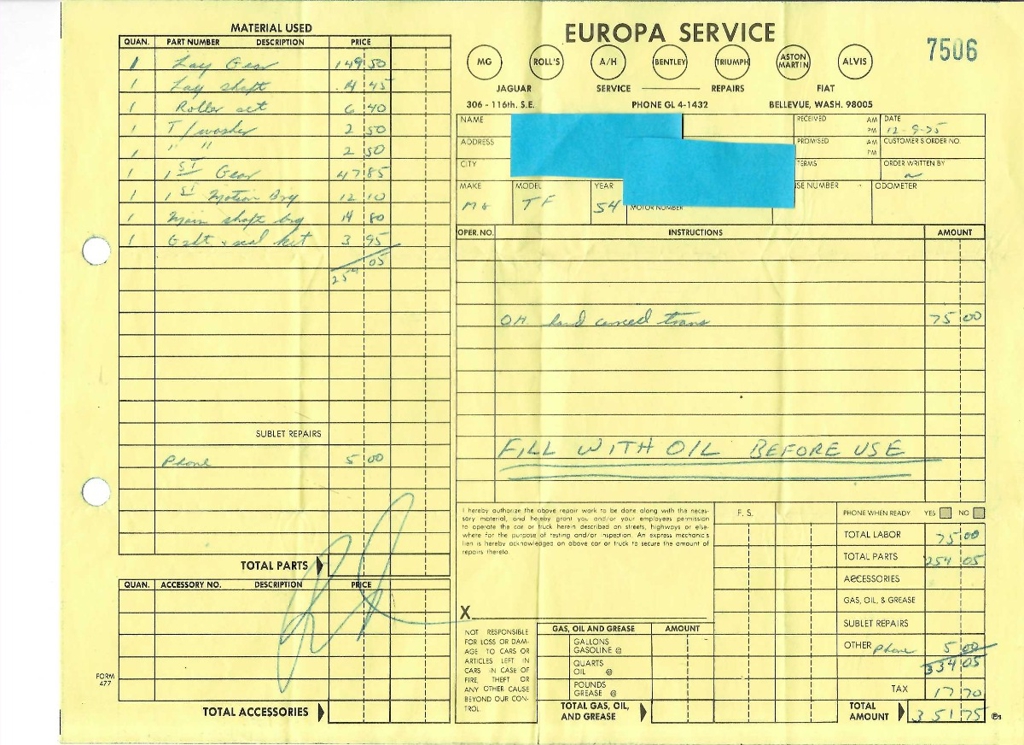 EUROPA SERVICE
7506
MG ROLL'S A/H BENTLEY TRIUMPH ASTON MARTIN ALVIS
JAGUAR SERVICE REPAIRS FIAT
306 - 116th. S.E. PHONE GL 4-1432 BELLEVUE, WASH. 98005
NAME
ADDRESS
CITY
RECEIVED AM PM
DATE 12-9-75
PROMISED AM PM
CUSTOMER'S ORDER NO.
TERMS
ORDER WRITTEN BY
MAKE MG
MODEL TF
YEAR 54
MOTOR NUMBER
SE NUMBER
ODOMETER
MATERIAL USED
QUAN. PART NUMBER DESCRIPTION PRICE
1 Lay Gear 149 50
1 Lay shaft 14 45
1 Roller set 6 40
1 T/washer 2 50
1 " " 2 50
1 1ST Gear 47 85
1 1ST Motion Brg 12 10
1 Main shaft brg 14 80
1 Gskt & seal kit 3 95
254 05
SUBLET REPAIRS
Phone 5 00
TOTAL PARTS
QUAN. ACCESSORY NO. DESCRIPTION PRICE
TOTAL ACCESSORIES
FORM 477
OPER. NO. INSTRUCTIONS AMOUNT
OH hand carried trans 75 00
FILL WITH OIL BEFORE USE
I hereby authorize the above repair work to be done along with the neces-
sary material, and hereby grant you and/or your employees permission
to operate the car or truck herein described on streets, highways or else-
where for the purpose of testing and/or inspection. An express mechanic's
lien is hereby acknowledged on above car or truck to secure the amount of
repairs thereto.
X
NOT RESPONSIBLE
FOR LOSS OR DAM-
AGE TO CARS OR
ARTICLES LEFT IN
CARS IN CASE OF
FIRE, THEFT OR
ANY OTHER CAUSE
BEYOND OUR CON-
TROL
GAS, OIL AND GREASE AMOUNT
GALLONS GASOLINE @
QUARTS OIL @
POUNDS GREASE @
TOTAL GAS, OIL, AND GREASE
F. S.
PHONE WHEN READY YES NO
TOTAL LABOR 75 00
TOTAL PARTS 254 05
ACCESSORIES
GAS, OIL, & GREASE
SUBLET REPAIRS
OTHER Phone 5 00
334 05
TAX 17 70
TOTAL AMOUNT 351 75